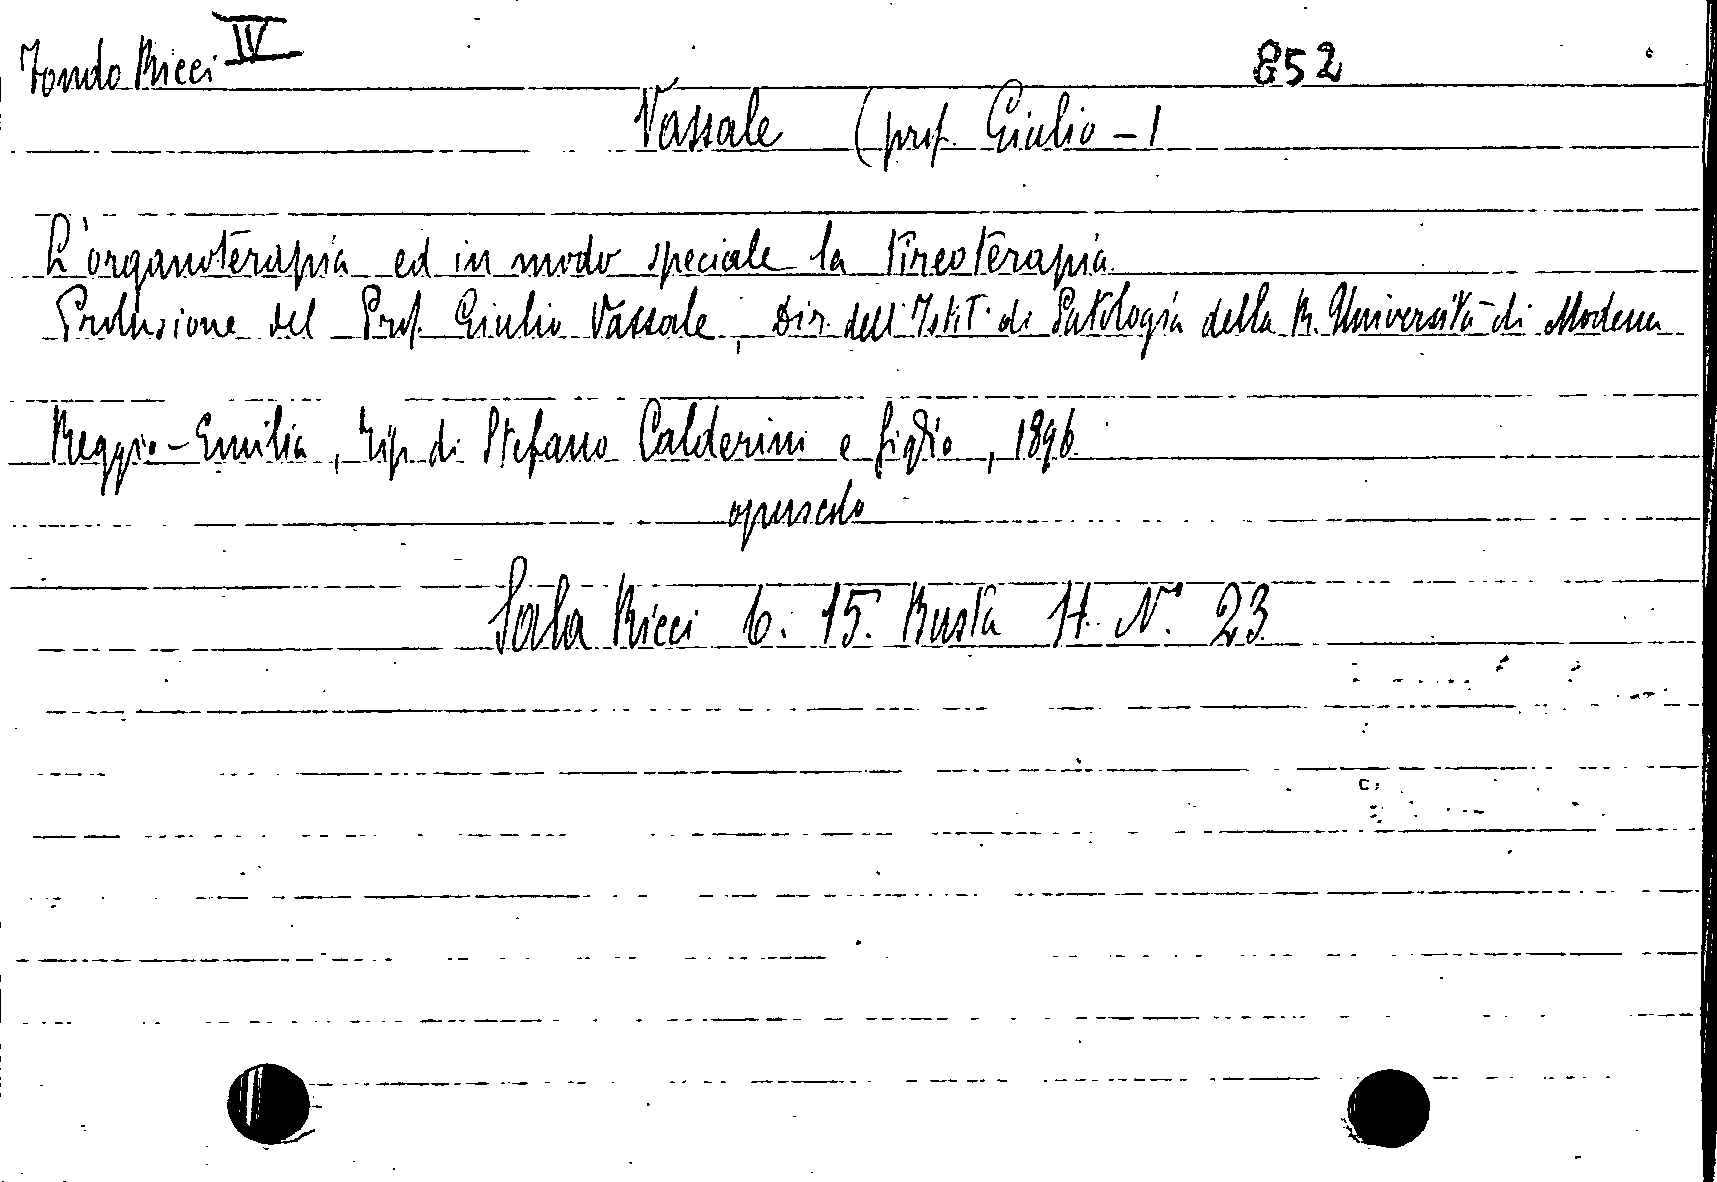 Fondo Ricci IV 852
Vassale (prof. Giulio - )
L'organoterapia ed in modo speciale la tireoterapia
Prolusione del Prof. Giulio Vassale, Dir. dell'Istit. di Patologia della R. Università di Modena
Reggio-Emilia, tip. di Stefano Calderini e figlio, 1896
opuscolo
Sala Ricci 6. 15. Busta H. N. 23